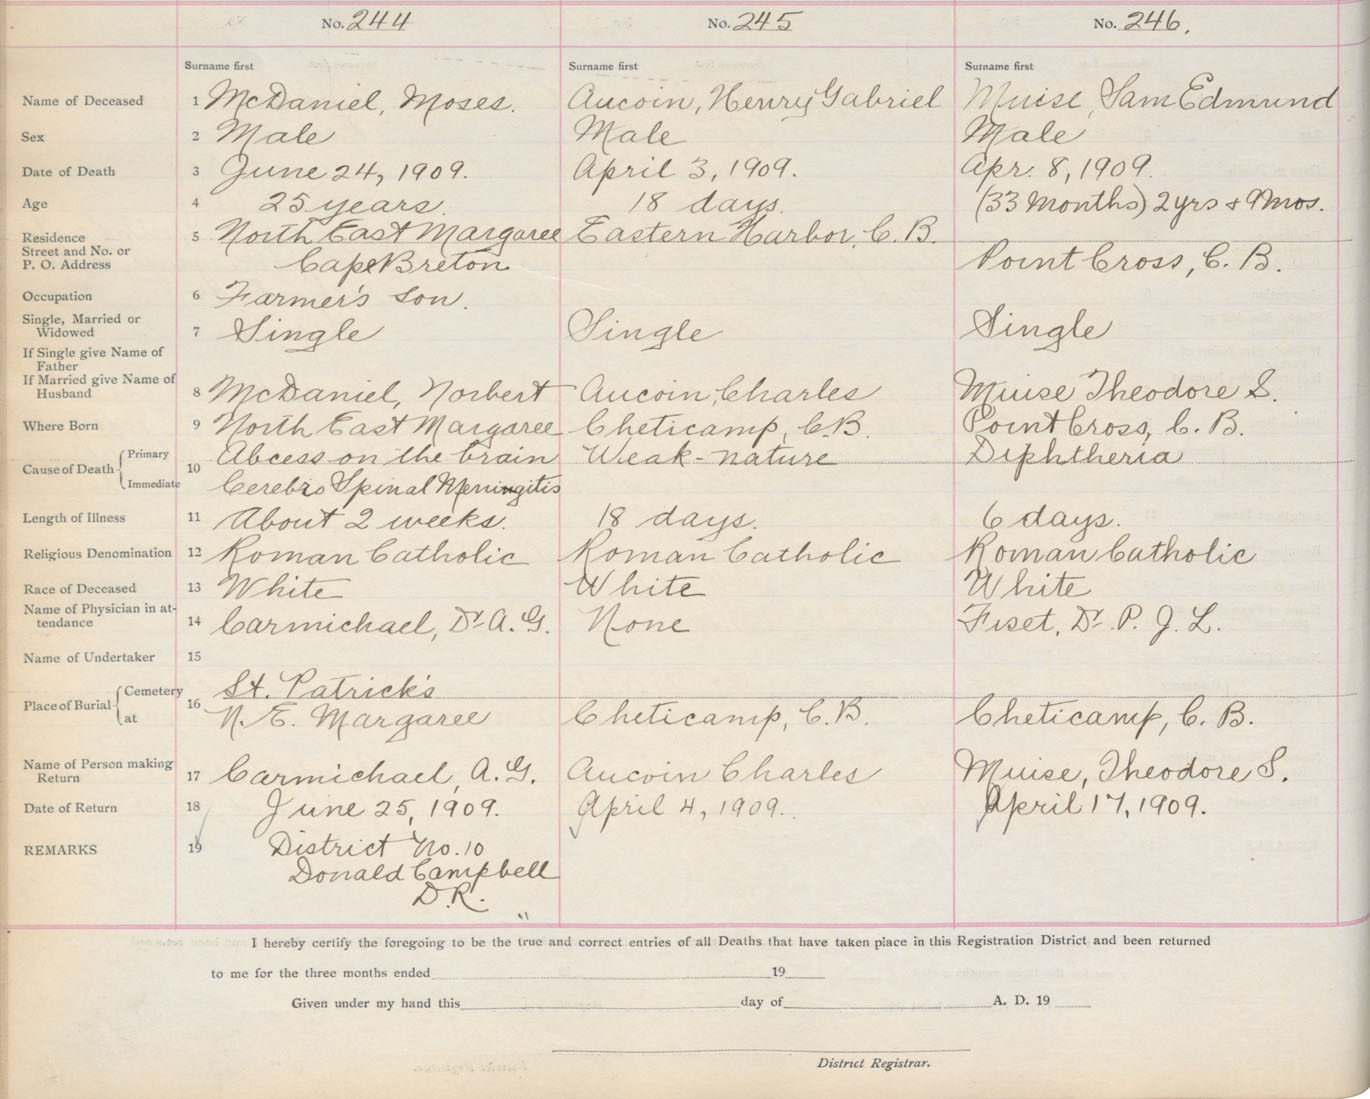 No. 244 No. 245 No. 246.
Surname first Surname first Surname first
Name of Deceased 1 McDaniel, Moses. Aucoin, Henry Gabriel Muise, Sam Edmund
Sex 2 Male Male Male
Date of Death 3 June 24, 1909. April 3, 1909. Apr. 8, 1909.
Age 4 25 years. 18 days. (33 Months) 2 yrs + 9 Mos.
Residence 5 North East Margaree Eastern Harbor, C. B.
Street and No. or
P. O. Address Cape Breton Point Cross, C. B.
Occupation 6 Farmer's Son.
Single, Married or
Widowed 7 Single Single Single
If Single give Name of
Father
If Married give Name of
Husband 8 McDaniel, Norbert Aucoin, Charles Muise Theodore S.
Where Born 9 North East Margaree Cheticamp, C. B. Point Cross, C. B.
Cause of Death Primary 10 Abcess on the brain Weak-nature Diphtheria
Immediate Cerebro Spinal Meningitis
Length of Illness 11 About 2 weeks. 18 days. 6 days.
Religious Denomination 12 Roman Catholic Roman Catholic Roman Catholic
Race of Deceased 13 White White White
Name of Physician in at-
tendance 14 Carmichael, Dr A. G. None Fiset, Dr. P. J. L.
Name of Undertaker 15
Place of Burial Cemetery 16 St. Patrick's
at N. E. Margaree Cheticamp, C. B. Cheticamp, C. B.
Name of Person making
Return 17 Carmichael, A. G. Aucoin Charles Muise, Theodore S.
Date of Return 18 June 25, 1909. April 4, 1909. April 17, 1909.
REMARKS 19 District No. 10
Donald Campbell
D. R.
I hereby certify the foregoing to be the true and correct entries of all Deaths that have taken place in this Registration District and been returned
to me for the three months ended 19
Given under my hand this day of A. D. 19
District Registrar.